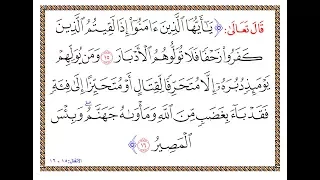 قَالَ تَعَالَى: ﴿ يَٰٓأَيُّهَا ٱلَّذِينَ ءَامَنُوٓا۟ إِذَا لَقِيتُمُ ٱلَّذِينَ
كَفَرُوا۟ زَحْفًا فَلَا تُوَلُّوهُمُ ٱلْأَدْبَارَ ١٥ وَمَن يُوَلِّهِمْ
يَوْمَئِذٍ دُبُرَهُۥٓ إِلَّا مُتَحَرِّفًا لِّقِتَالٍ أَوْ مُتَحَيِّزًا إِلَىٰ فِئَةٍ
فَقَدْ بَآءَ بِغَضَبٍ مِّنَ ٱللَّهِ وَمَأْوَىٰهُ جَهَنَّمُ ۖ وَبِئْسَ
ٱلْمَصِيرُ ١٦ ﴾
الأنفال: ١٥ - ١٦